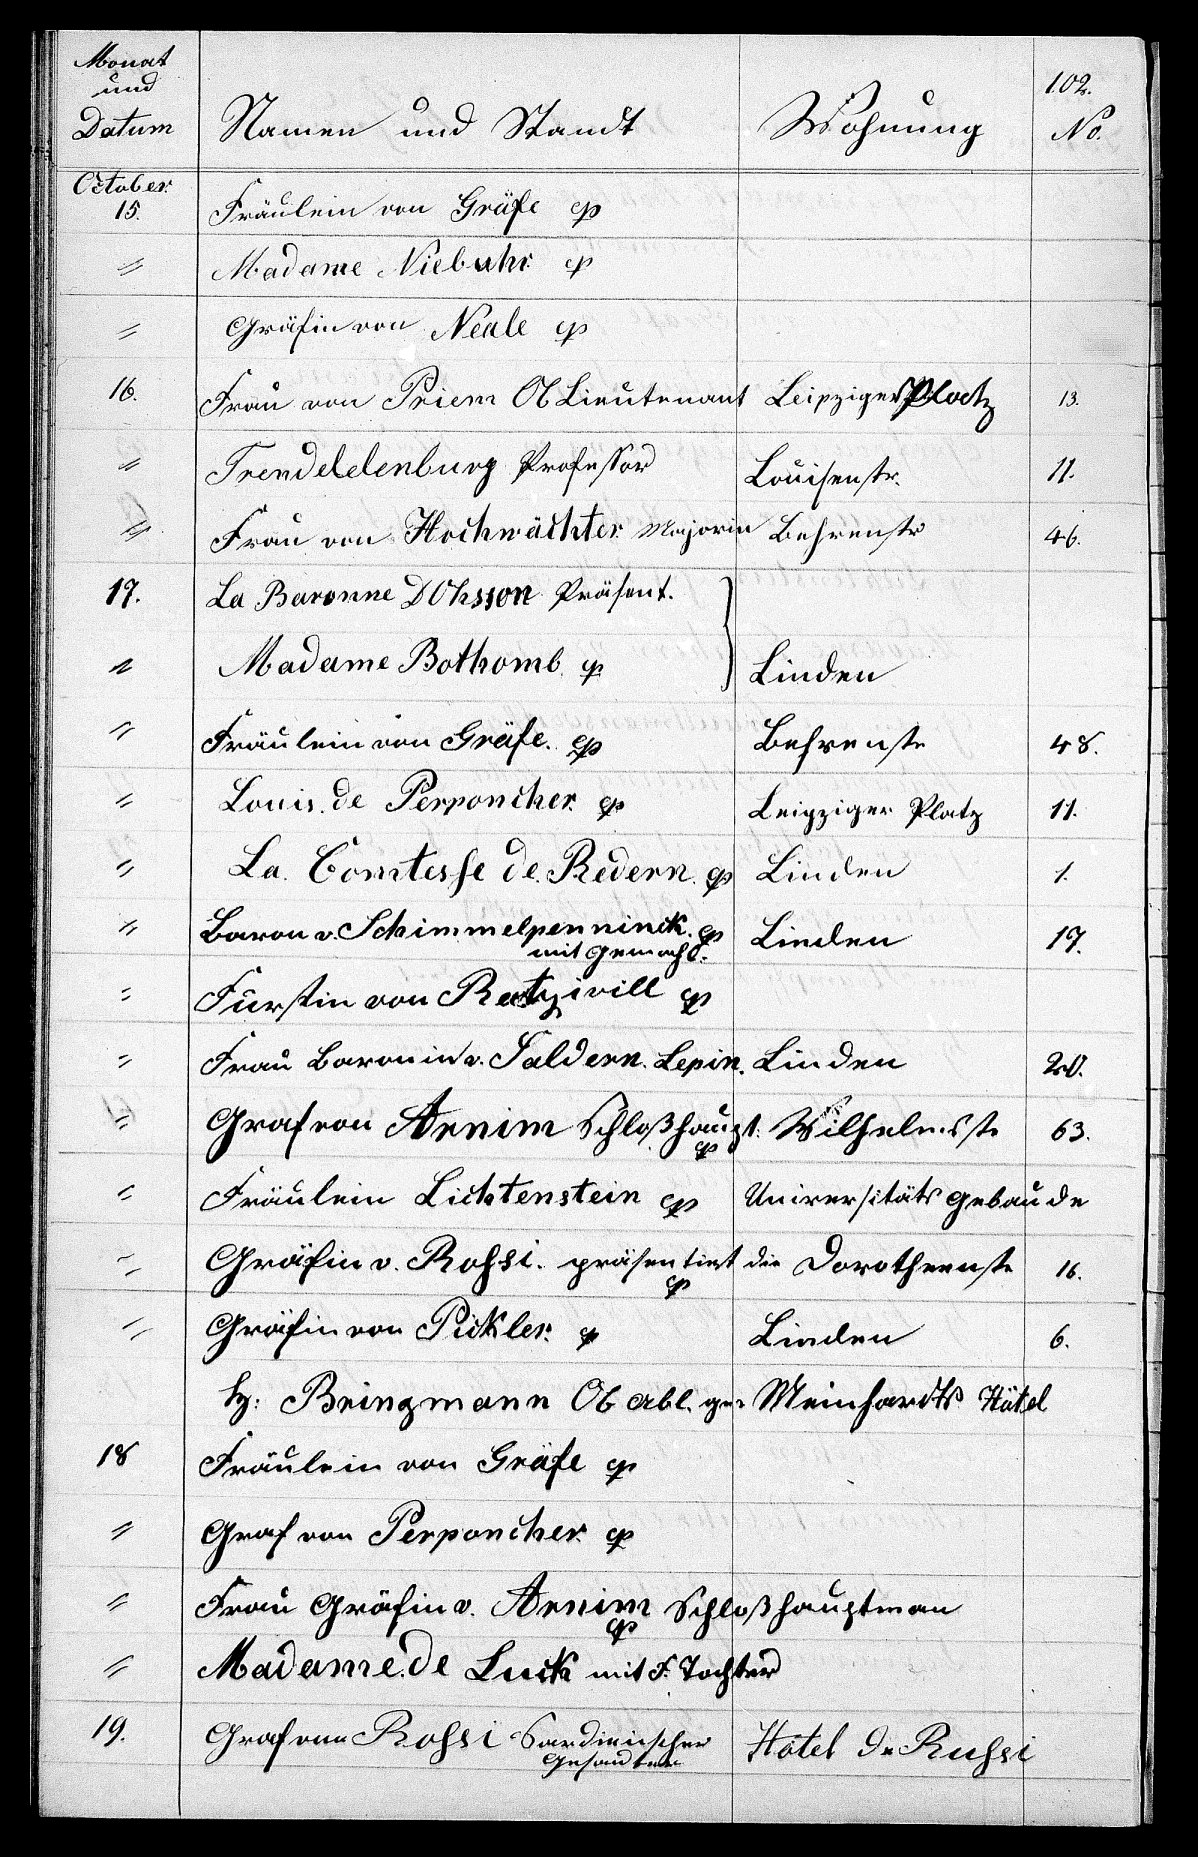 Monat
und
Datum
Namen und Standt
Wohnung
102.
No.
October
15. Fräulein von Gräfe
〃 Madame Niebuhr
〃 Gräfin von Neale
16. Frau von Priem Ob Lieutenant Leipziger Platz 13.
〃 Trendelelenburg Professor Louisenstr. 11.
〃 Frau von Hochwächter Majorin Behrenstr 46.
17. La Baronne DOhsson Präsent.
〃 Madame Bothomb. Linden
〃 Fräulein von Gräfe. Behrenstr 48.
〃 Louis. de Perponcher Leipziger Platz 11.
〃 La. Comtesse de. Redern. Linden 1.
〃 Baron v. Schimmelpenninck. Linden 17.
mit Gemahl.
〃 Fürstin von Ratzivill
〃 Frau Baronin v. Saldern. Lepin. Linden 20.
〃 Graf von Arnim Schloßhaupt: Wilhelmsstr 63.
〃 Fräulein Lichtenstein Universitäts Gebäude
〃 Gräfin v. Rossi. präsentirt die Dorotheenstr 16.
〃 Gräfin von Pickler. Linden 6.
H: Bringmann Ob Meinhardts Hôtel
18 Fräulein von Gräfe
〃 Graf von Perponcher
〃 Frau Gräfin v. Arnim Schloßhauptman
〃 Madame. de Luck mit F. Tochter
19. Graf von Rossi Sardinischer Hôtel de Russi
Gesandter